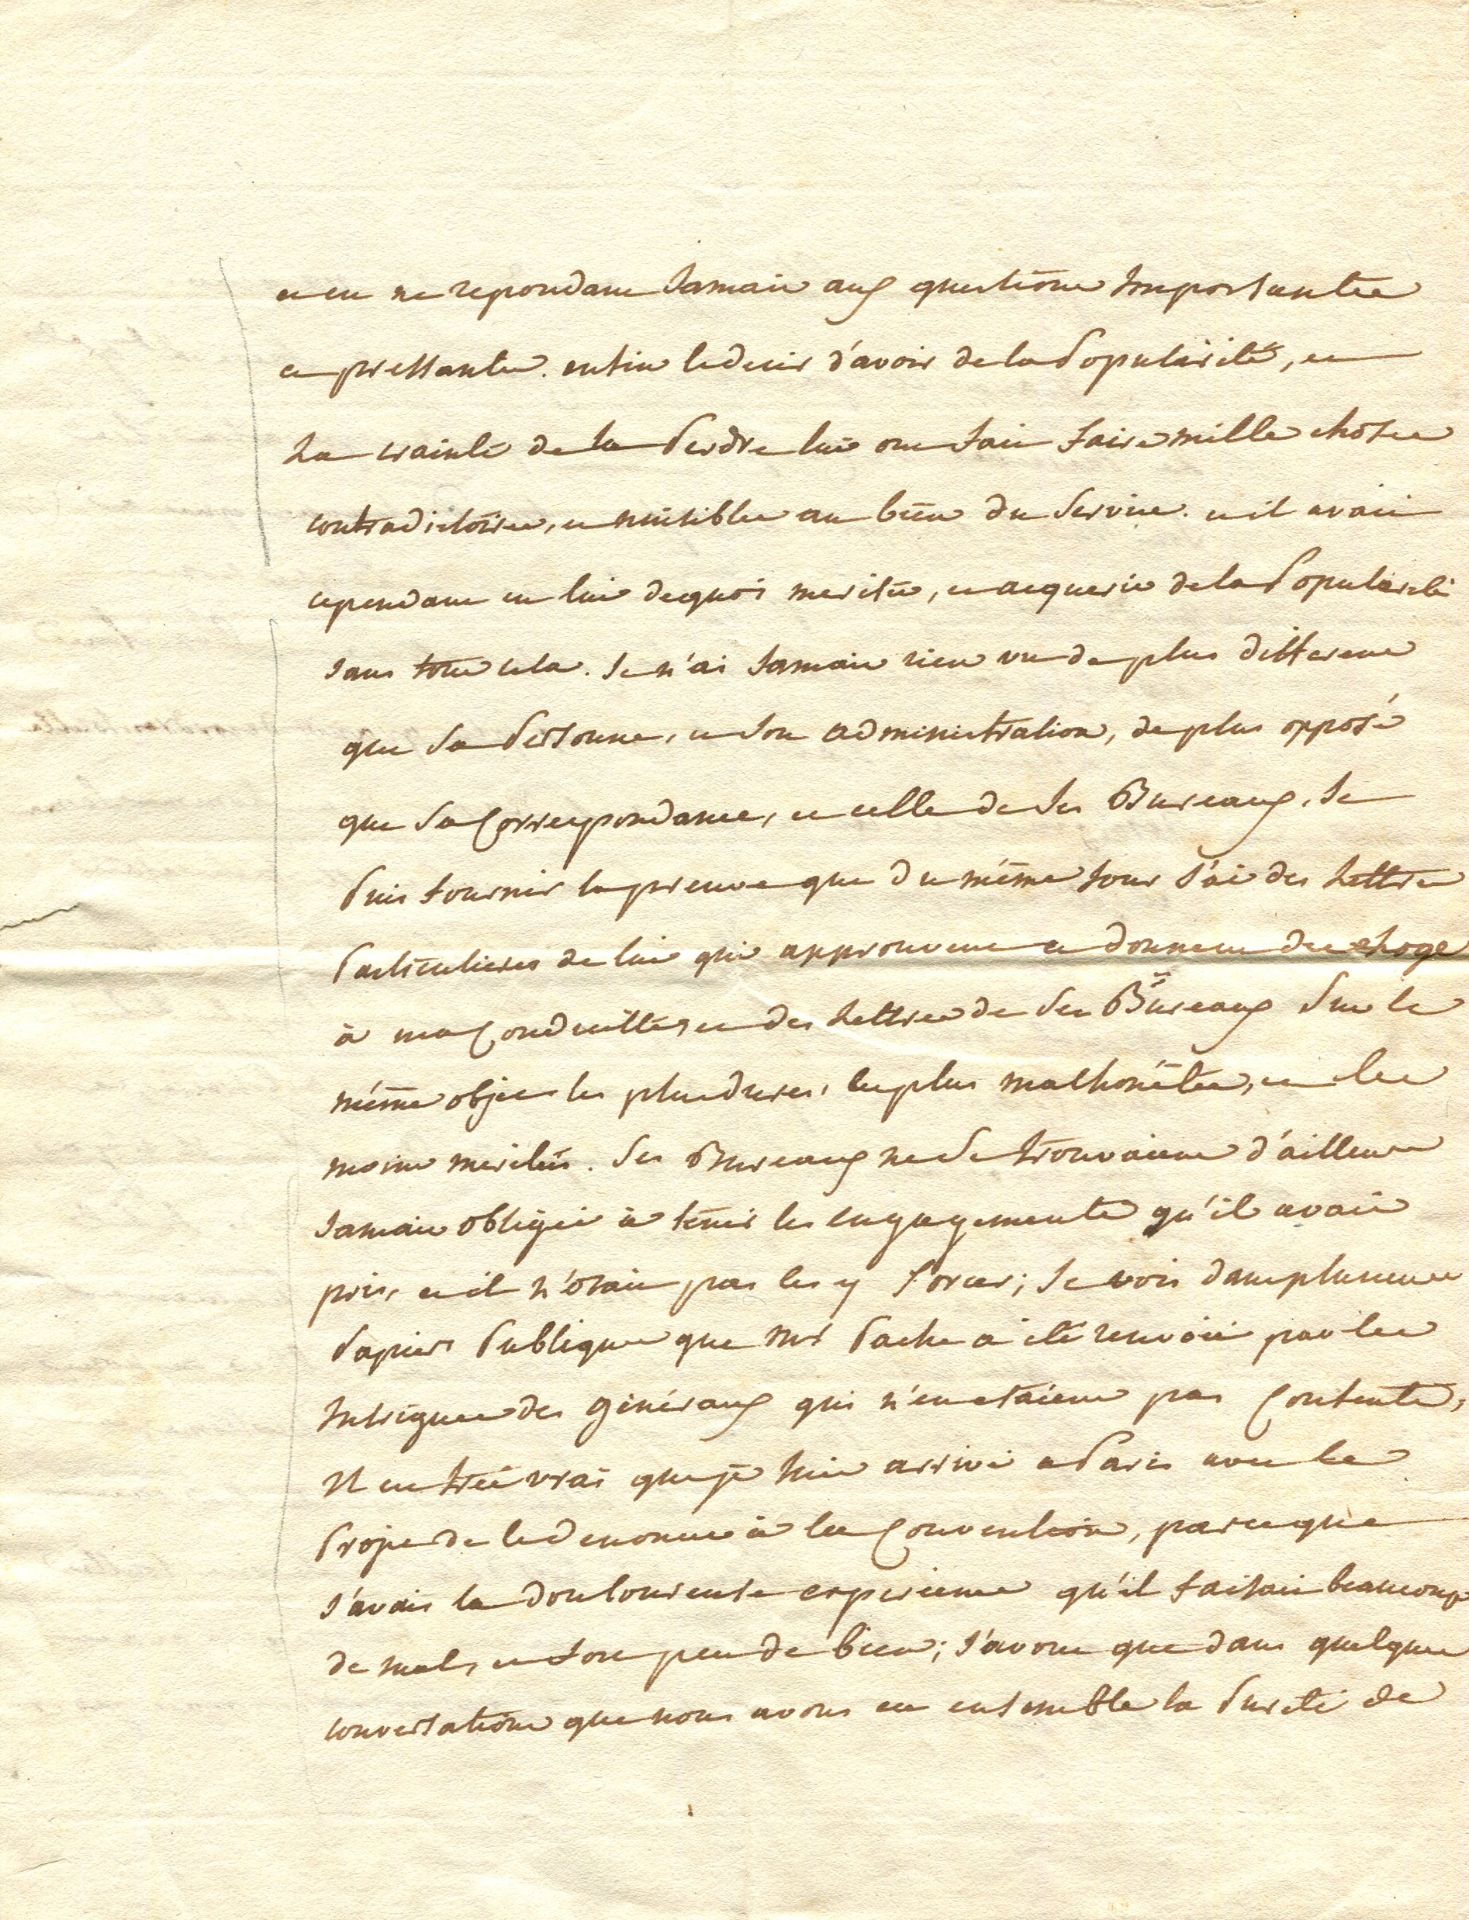 et en ne repondant Jamais aux questions Importantes
et pressantes. enfin le desir d'avoir de la Popularité, et
La crainte de la Perdre lui ont fait faire mille choses
contradictoires, et nuisibles au bien du Service. et il avait
cependant en lui dequoi meriter, et acquerir de la Popularité
sans tout cela. Je n'ai Jamais rien vu de plus different
que sa Personne, et son administration, de plus opposé
que sa Correspondance, et celle de ses Bureaux, Je
Puis fournir la preuve que du même Jour J'ai des Lettres
Particulieres de lui qui approuvent et donnent des eloge
à ma Conduitte, et des Lettres de ses Bureaux Sur le
même objet les plus dures, les plus malhonêtes, et les
moins meritées. Ses Bureaux ne se trouvaient d'ailleurs
Jamais obligés à tenir les engagements qu'il avait
pris, et il n'osait pas les y forcer; Je vois dans plusieurs
Papiers Publiques que Mr Pache a été renvoié par les
Intrigues des généraux qui n'en etaient pas Contents,
Il est très vrai que je suis arrivé a Paris avec le
Projet de le denoncer à la Convention, parceque
J'avais la douloureuse experience qu'il faisait beaucoup
de mal, et fort peu de bien; J'avoue que dans quelques
conversations que nous avons eu ensemble la Pureté de